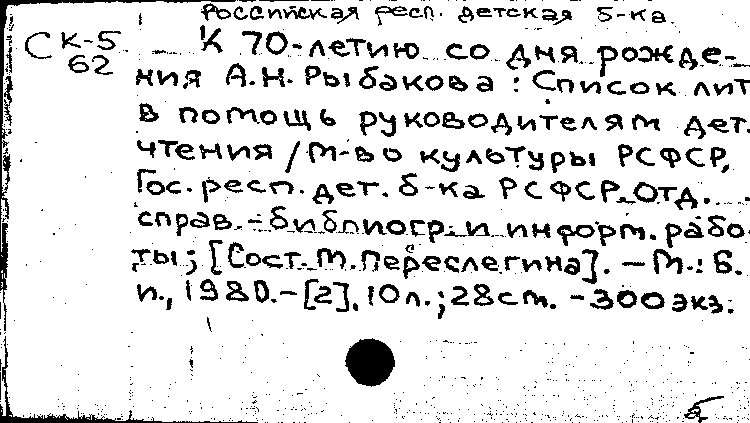 Российская респ. детская б-ка
СК-5
62
К 70-летию со дня рожде-
ния А.Н. Рыбакова : Список лит
в помощь руководителям дет.
чтения / М-во культуры РСФСР,
Гос. респ. дет. б-ка РСФСР. Отд.
справ.-библиогр. и информ. рабо-
ты ; [Сост. М. Переслегина]. - М. : Б.
и., 1980. - [2], 10л. ; 28cm. - 300 экз.